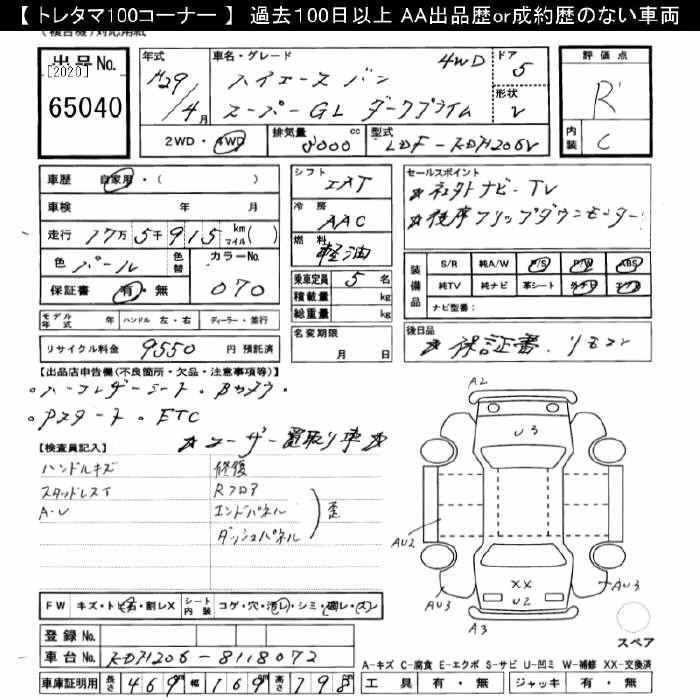 【 トレタマ100コーナー 】 過去100日以上 AA出品歴or成約歴のない車両
出品No.
[2020]
65040
年式
H29/4月
車名・グレード
ハイエース バン 4WD
スーパーGL ダークプライム
ドア 5
形状 V
2WD・4WD
排気量 3000 cc
型式 LDF-KDH206V
評価点 R
内装 C
車歴 自家用・( )
車検 年 月
走行 17万5千915 km マイル ( )
色 パール 色替
カラーNo. 070
保証書 有・無
モデル年式 年 ハンドル 左・右 ディーラー・並行
リサイクル料金 9550 円 預託済
シフト IAT
冷房 AAC
燃料 軽油
乗車定員 5 名
積載量 kg
総重量 kg
名変期限 月 日
セールスポイント
☆社外ナビ・TV
☆後席フリップダウンモニター
装備品
S/R 純A/W P/S P/W ABS
純TV 純ナビ 革シート 外ナビ エアB
ナビ型番:
後日品
☆保証書、リモコン
【出品店申告欄(不良箇所・欠品・注意事項等)】
。ハーフレザーシート・Bカメラ・
。Pスタート・ETC
☆ユーザー買取り車☆
【検査員記入】
ハンドルキズ 修復
スタッドレスT Rフロア
A-U エンドパネル
ダッシュパネル
歪
A2
U3
AU2
XX
U2
AU3
AU3
A3
スペア
FW キズ・トビ石・割レX シート内装 コゲ・穴・汚レ・シミ・切レ・スレ
登録No.
車台No. KDH206-8118072
車庫証明用 長さ 469 幅 169 高さ 198
A-キズ C-腐食 E-エクボ S-サビ U-凹ミ W-補修 XX-交換済
工具 有・無 ジャッキ 有・無